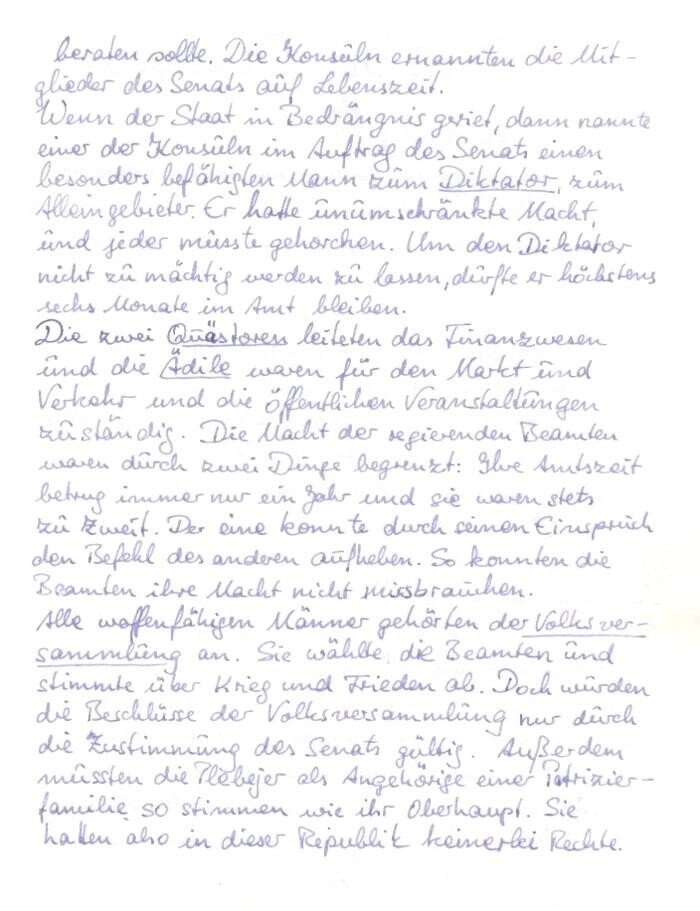 beraten sollte. Die Konsuln ernannten die Mit-
glieder des Senats auf Lebenszeit.
Wenn der Staat in Bedrängnis geriet, dann nannte
einer der Konsuln im Auftrag des Senats einen
besonders befähigten Mann zum Diktator, zum
Alleingebieter. Er hatte unumschränkte Macht,
und jeder musste gehorchen. Um den Diktator
nicht zu mächtig werden zu lassen, durfte er höchstens
sechs Monate im Amt bleiben.
Die zwei Quästoren leiteten das Finanzwesen
und die Ädile waren für den Markt und
Verkehr und die öffentlichen Veranstaltungen
zuständig. Die Macht der regierenden Beamten
waren durch zwei Dinge begrenzt: Ihre Amtszeit
betrug immer nur ein Jahr und sie waren stets
zu zweit. Der eine konnte durch seinen Einspruch
den Befehl des anderen aufheben. So konnten die
Beamten ihre Macht nicht missbrauchen.
Alle waffenfähigen Männer gehörten der Volksver-
sammlung an. Sie wählte die Beamten und
stimmte über Krieg und Frieden ab. Doch wurden
die Beschlüsse der Volksversammlung nur durch
die Zustimmung des Senats gültig. Außerdem
mussten die Plebejer als Angehörige einer Patrizier-
familie so stimmen wie ihr Oberhaupt. Sie
hatten also in dieser Republik keinerlei Rechte.